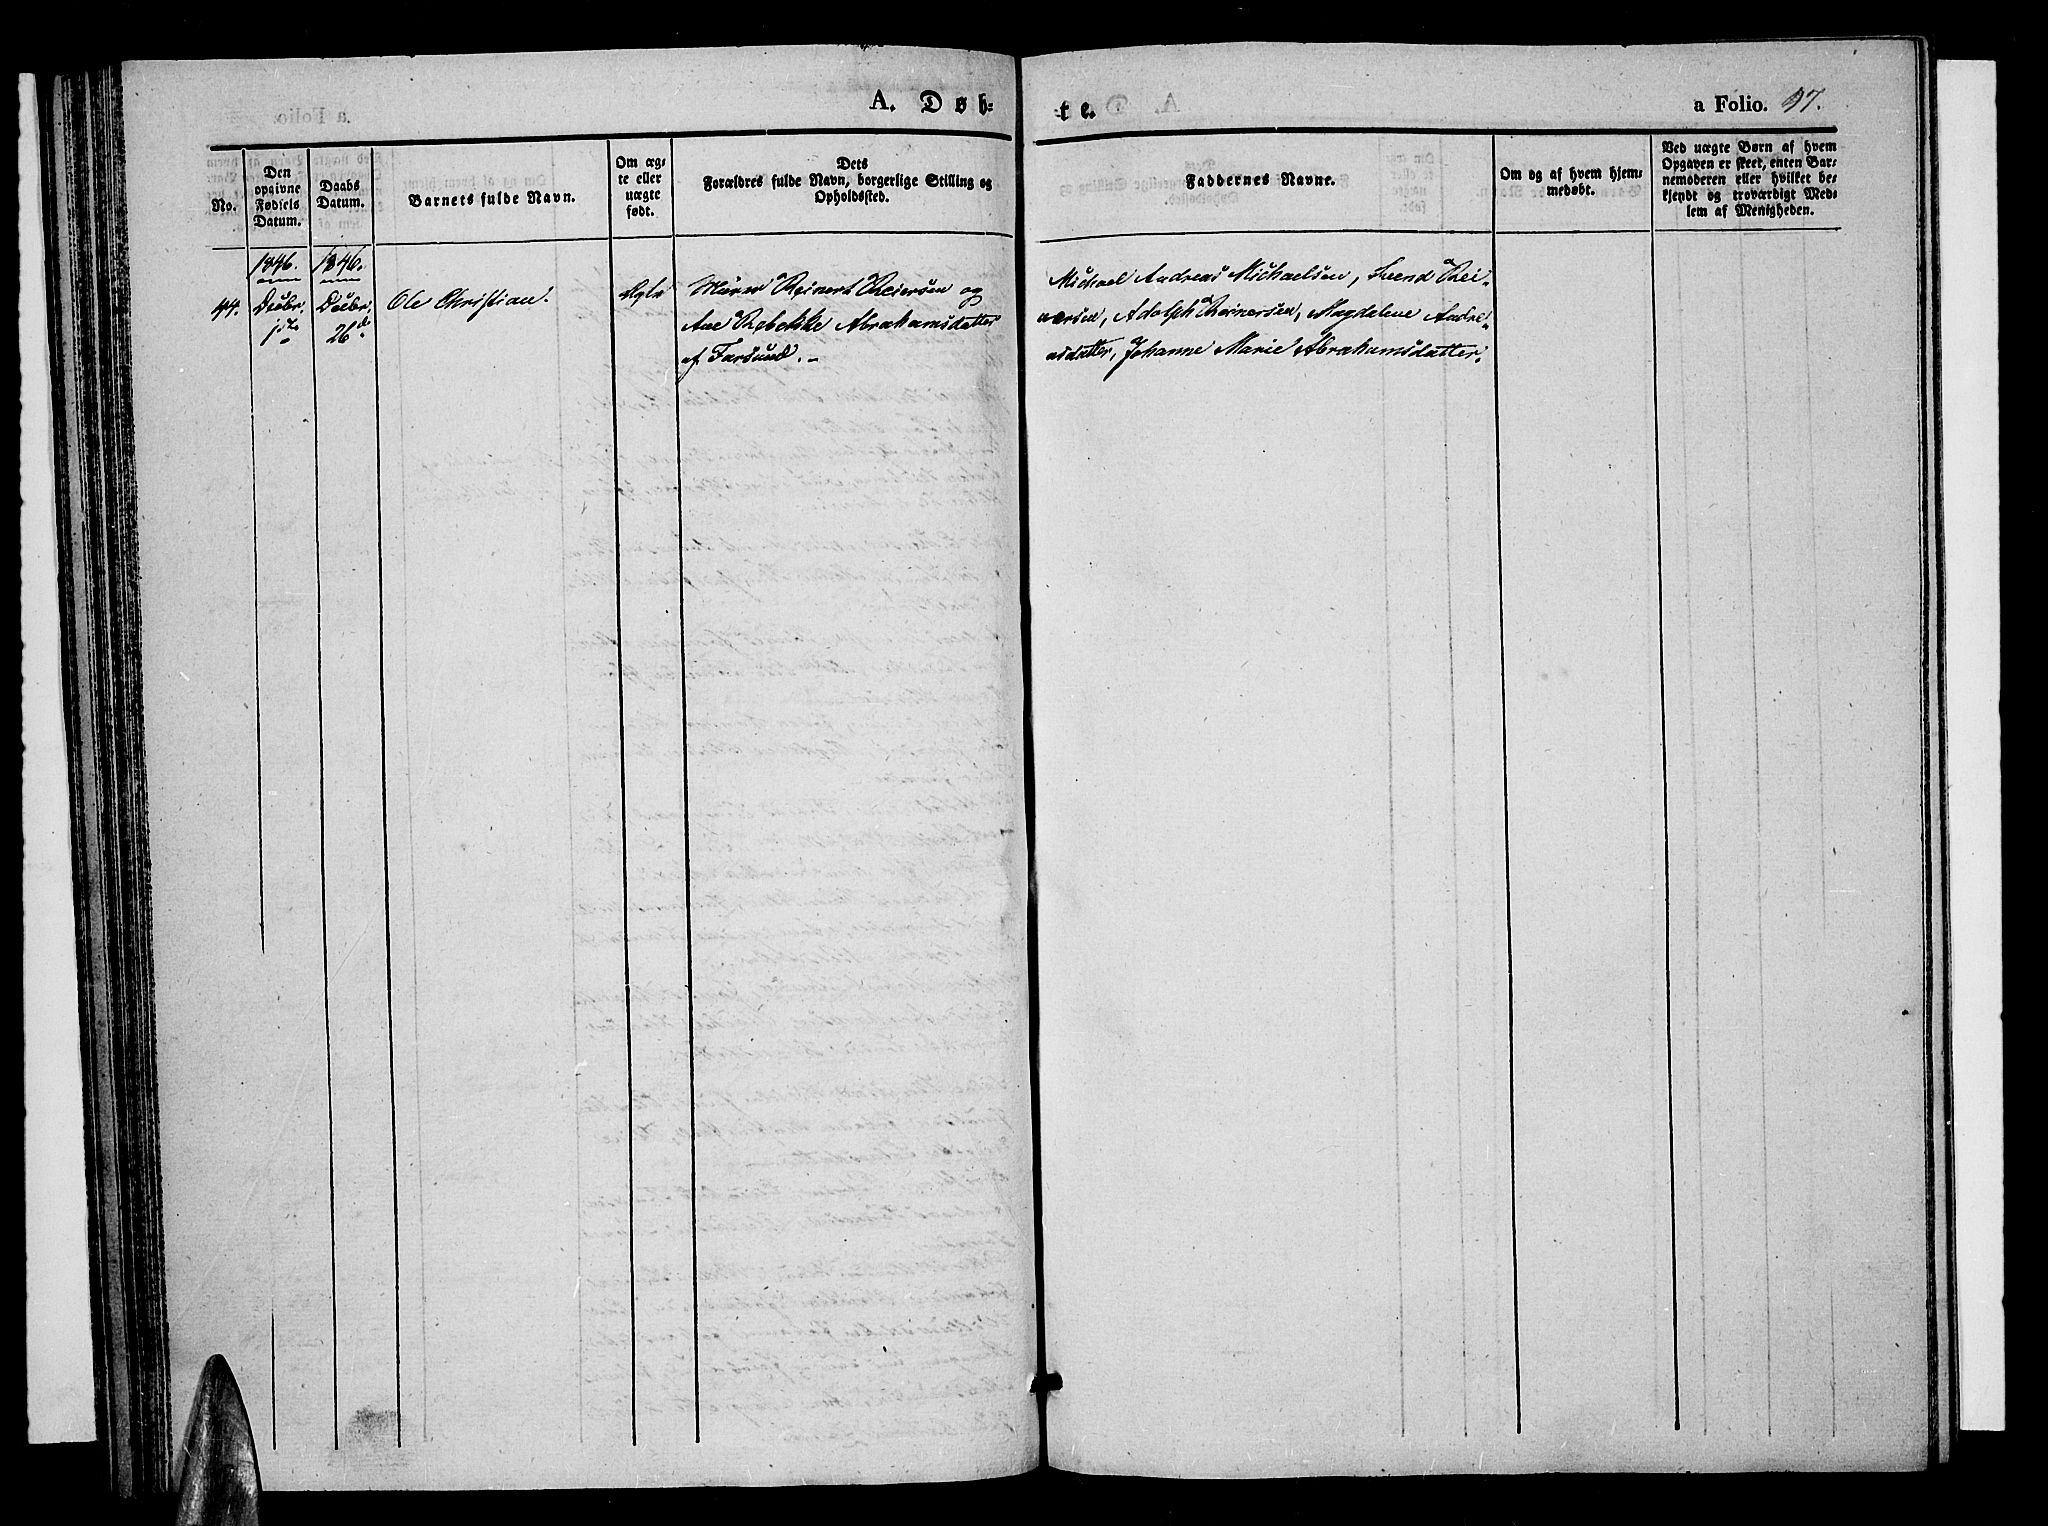 A. Døb-
te.
a Folio. 97.
No.
Den
opgivne
Fødsels
Datum.
Daabs
Datum.
Barnets fulde Navn.
Om æg-
te eller
uægte
født.
Dets
Forældres fulde Navn, borgerlige Stilling og
Opholdssted.
Faddernes Navne.
Om og af hvem hjem-
medøbt.
Ved uægte Børn af hvem
Opgaven er skeet, enten Bar-
nemoderen eller hvilket be-
kjendt og troværdigt Med-
lem af Menigheden.
1846.
1846.
44.
Decbr.
1ste
Decbr.
26de
Ole Christian.
Ægte
Murer Reinert Reiersen og
Ane Rebekke Abrahamsdatter
af Farsund.
Michael Andreas Michaelsen, Svend Rei-
nersen, Adolph Reinersen, Magdalene Andre-
asdatter, Johanne Marie Abrahamsdatter.